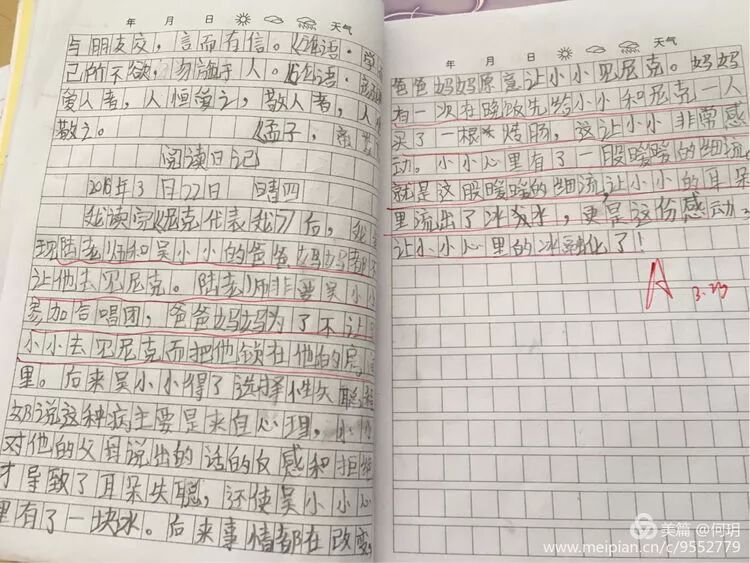 年 月 日 天气
与朋友交,言而有信。《论语·学
己所不欲,勿施于人。《论语·
爱人者,人恒爱之,敬人者,人
敬之。 《孟子,
阅读日记
2018年3月22日 晴 四
我读完《尼克代表我》后,我
现陆老师和吴小小的爸爸妈妈都
让他去见尼克。陆老师非要吴小
参加合唱团,爸爸妈妈为了不让
小小去见尼克而把他锁在他的
里。后来吴小小得了选择性失聪
奶说这种病主要是来自心理,小
对他的父母说出的话的反感和拒
才导致了耳朵失聪,还使吴小小心
里有了一块冰。后来事情都在改变
年 月 日 天气
爸爸妈妈原意让小小见尼克。妈妈
有一次在晚饭先给小小和尼克一人
买了一根烤肠,这让小小非常感
动。小小心里有了一股暖暖的细流,
就是这股暖暖的细流,让小小的耳朵
里流出了冰水,更是这份感动,
让小小心里的冰融化了!
A
3.23
美篇 @何玥
www.meipian.cn/c/9552779